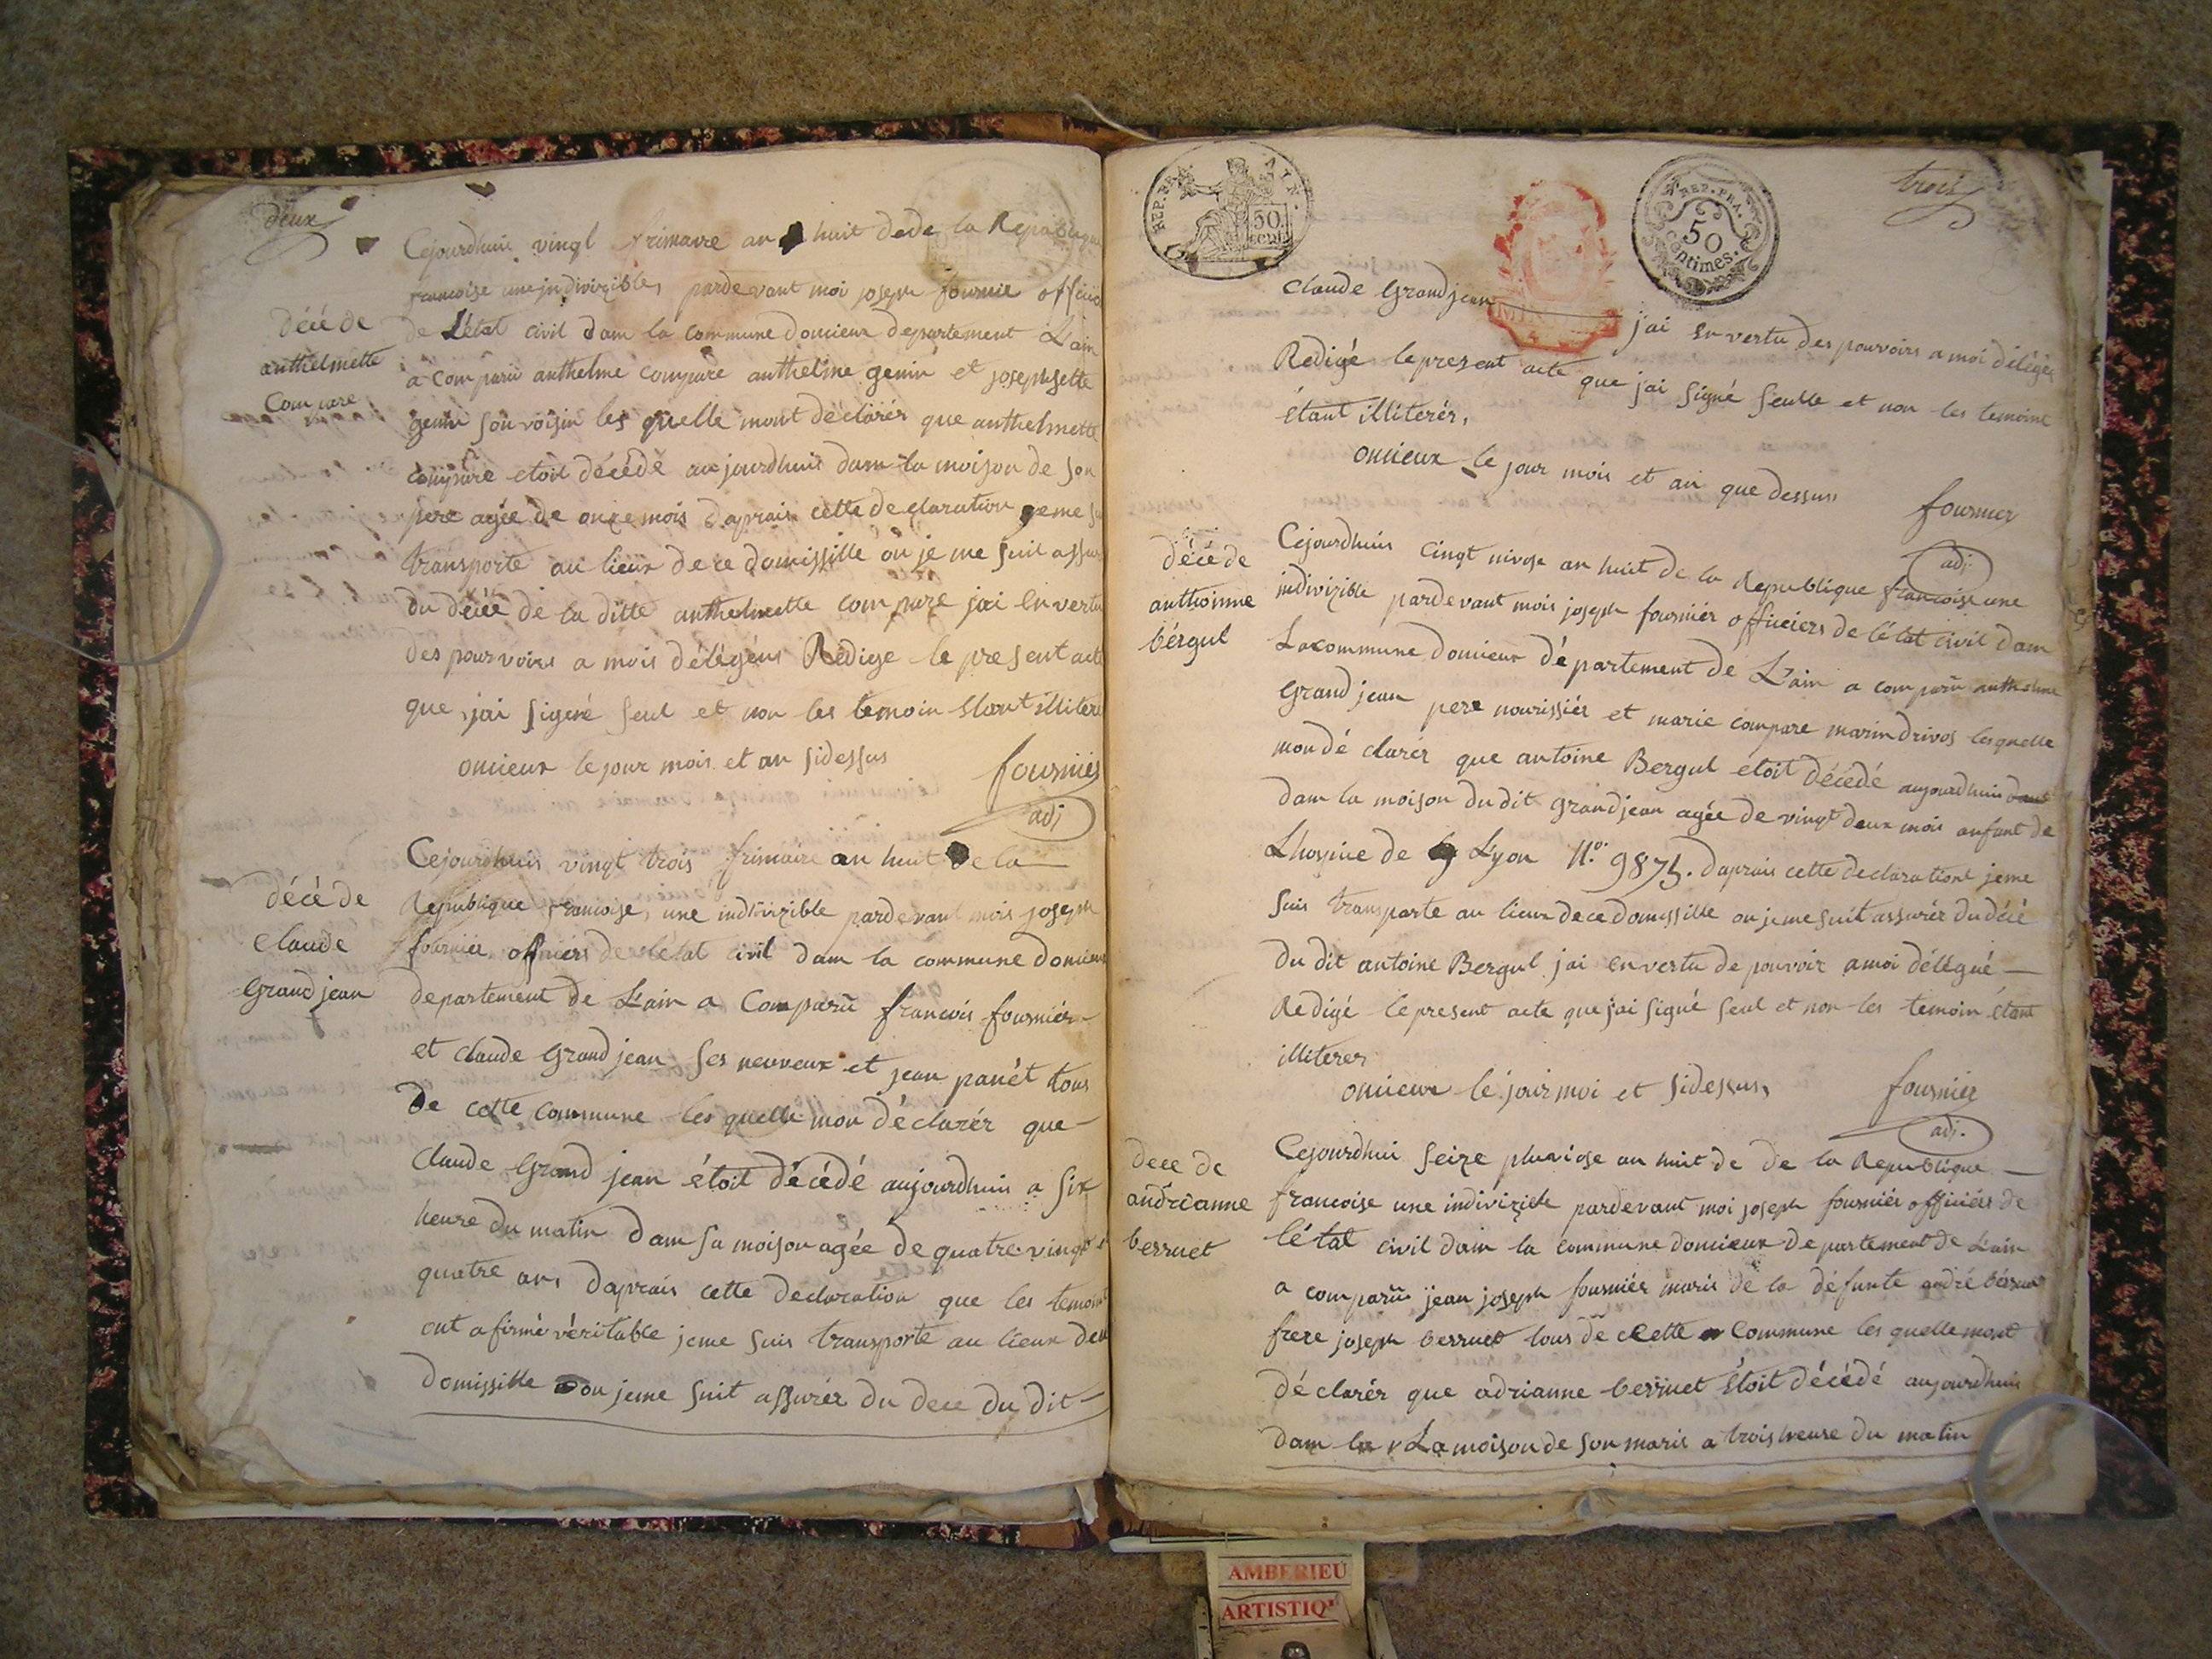 deux
Cejourdhui vingt frimaire an huit dede la Republique
francoise une indivizible, pardevant moi joseph fournié officie
décé de
anthelmette
Compare
de L'état civil dam la commune doncieux departement L'ain
a comparu anthelme compare anthelme genin et josephsette
genin son voisin les quelle mont déclarér que anthelmette
compare etoit décédé aujourdhuis dam la moison de son
pere agée de onze mois daprais cette declaration jeme su
transporte au lieux de ce domissille ou je me suit assu
du décée de la ditte anthelmette compare jai en vertu
des pourvoirs a mois délégéns Redige le present acte
que jai signé seul et non les temoin etant illitere
oncieux le jour mois et an sidessus
fournier
adj
Cejourdhuis vingt trois frimaire an huit de la
décé de
Claude
Grand jean
Republique francoise, une indivizible pardevant mois joseph
fourniér officiers de létat civil dam la commune doncieux
departement de L'ain a Comparu francois fourniér
et claude Grand jean ses neuveux et jean panét tous
De cette commune les quelle mon déclarér que
Claude Grand jean étoit décédé aujourdhuis a six
heure du matin dam sa moison agée de quatre vingt
quatre ans daprais cette declaration que les temoin
ont afirmé véritable jeme suis transporté au lieux de
domissille ou jeme suit assurér du dece du dit
REP. FRA.
50
CENT.
REP. FRA.
50
Centimes.
trois
Claude Grandjean jai en vertu des pouvoirs a moi délégés
Redigé le present acte que jai signé seulle et non les temoins
étant illiterér,
oncieux le jour mois et an que dessus
fournier
adj.
décé de
anthoinne
bérgul
Cejourdhuis cingt nivose an huit de la Republique francoise une
indivizible pardevant mois joseph fourniér officiers de létat civil dam
La commune doncieux département de L'ain a comparu anthelme
Grand jean pere nourissiér et marie compare marin drivos lesquelle
mon déclarér que antoine Bergul etoit décédé aujourdhuis
dam la moison du dit grandjean agée de vingt deux mois anfant de
Lhospice de Lyon N.º 9875. daprais cette declarationt jeme
suis transporte au lieux de ce domissille ou jeme suit assurér du décé
du dit antoine Bergul jai en vertu de pouvoir a moi délégué
Redigé le present acte que jai signé seul et non les temoin étant
illiterer
oncieux le jour moi et sidessus,
fournier
adj.
dece de
andréanne
berruet
Cejourdhui seize pluviose an huit de de la Republique
francoise une indivizible pardevant moi joseph fourniér officiers de
létat civil dam la commune doncieux departement de L'ain
a comparu jean joseph fourniér maris de la défunte andré
frere joseph berruet tous de cette Commune les quelle mont
déclarér que adrianne berruet étoit décédé aujourdhuis
dam la La moison de son maris a trois heure du matin
AMBERIEU
ARTISTIQ